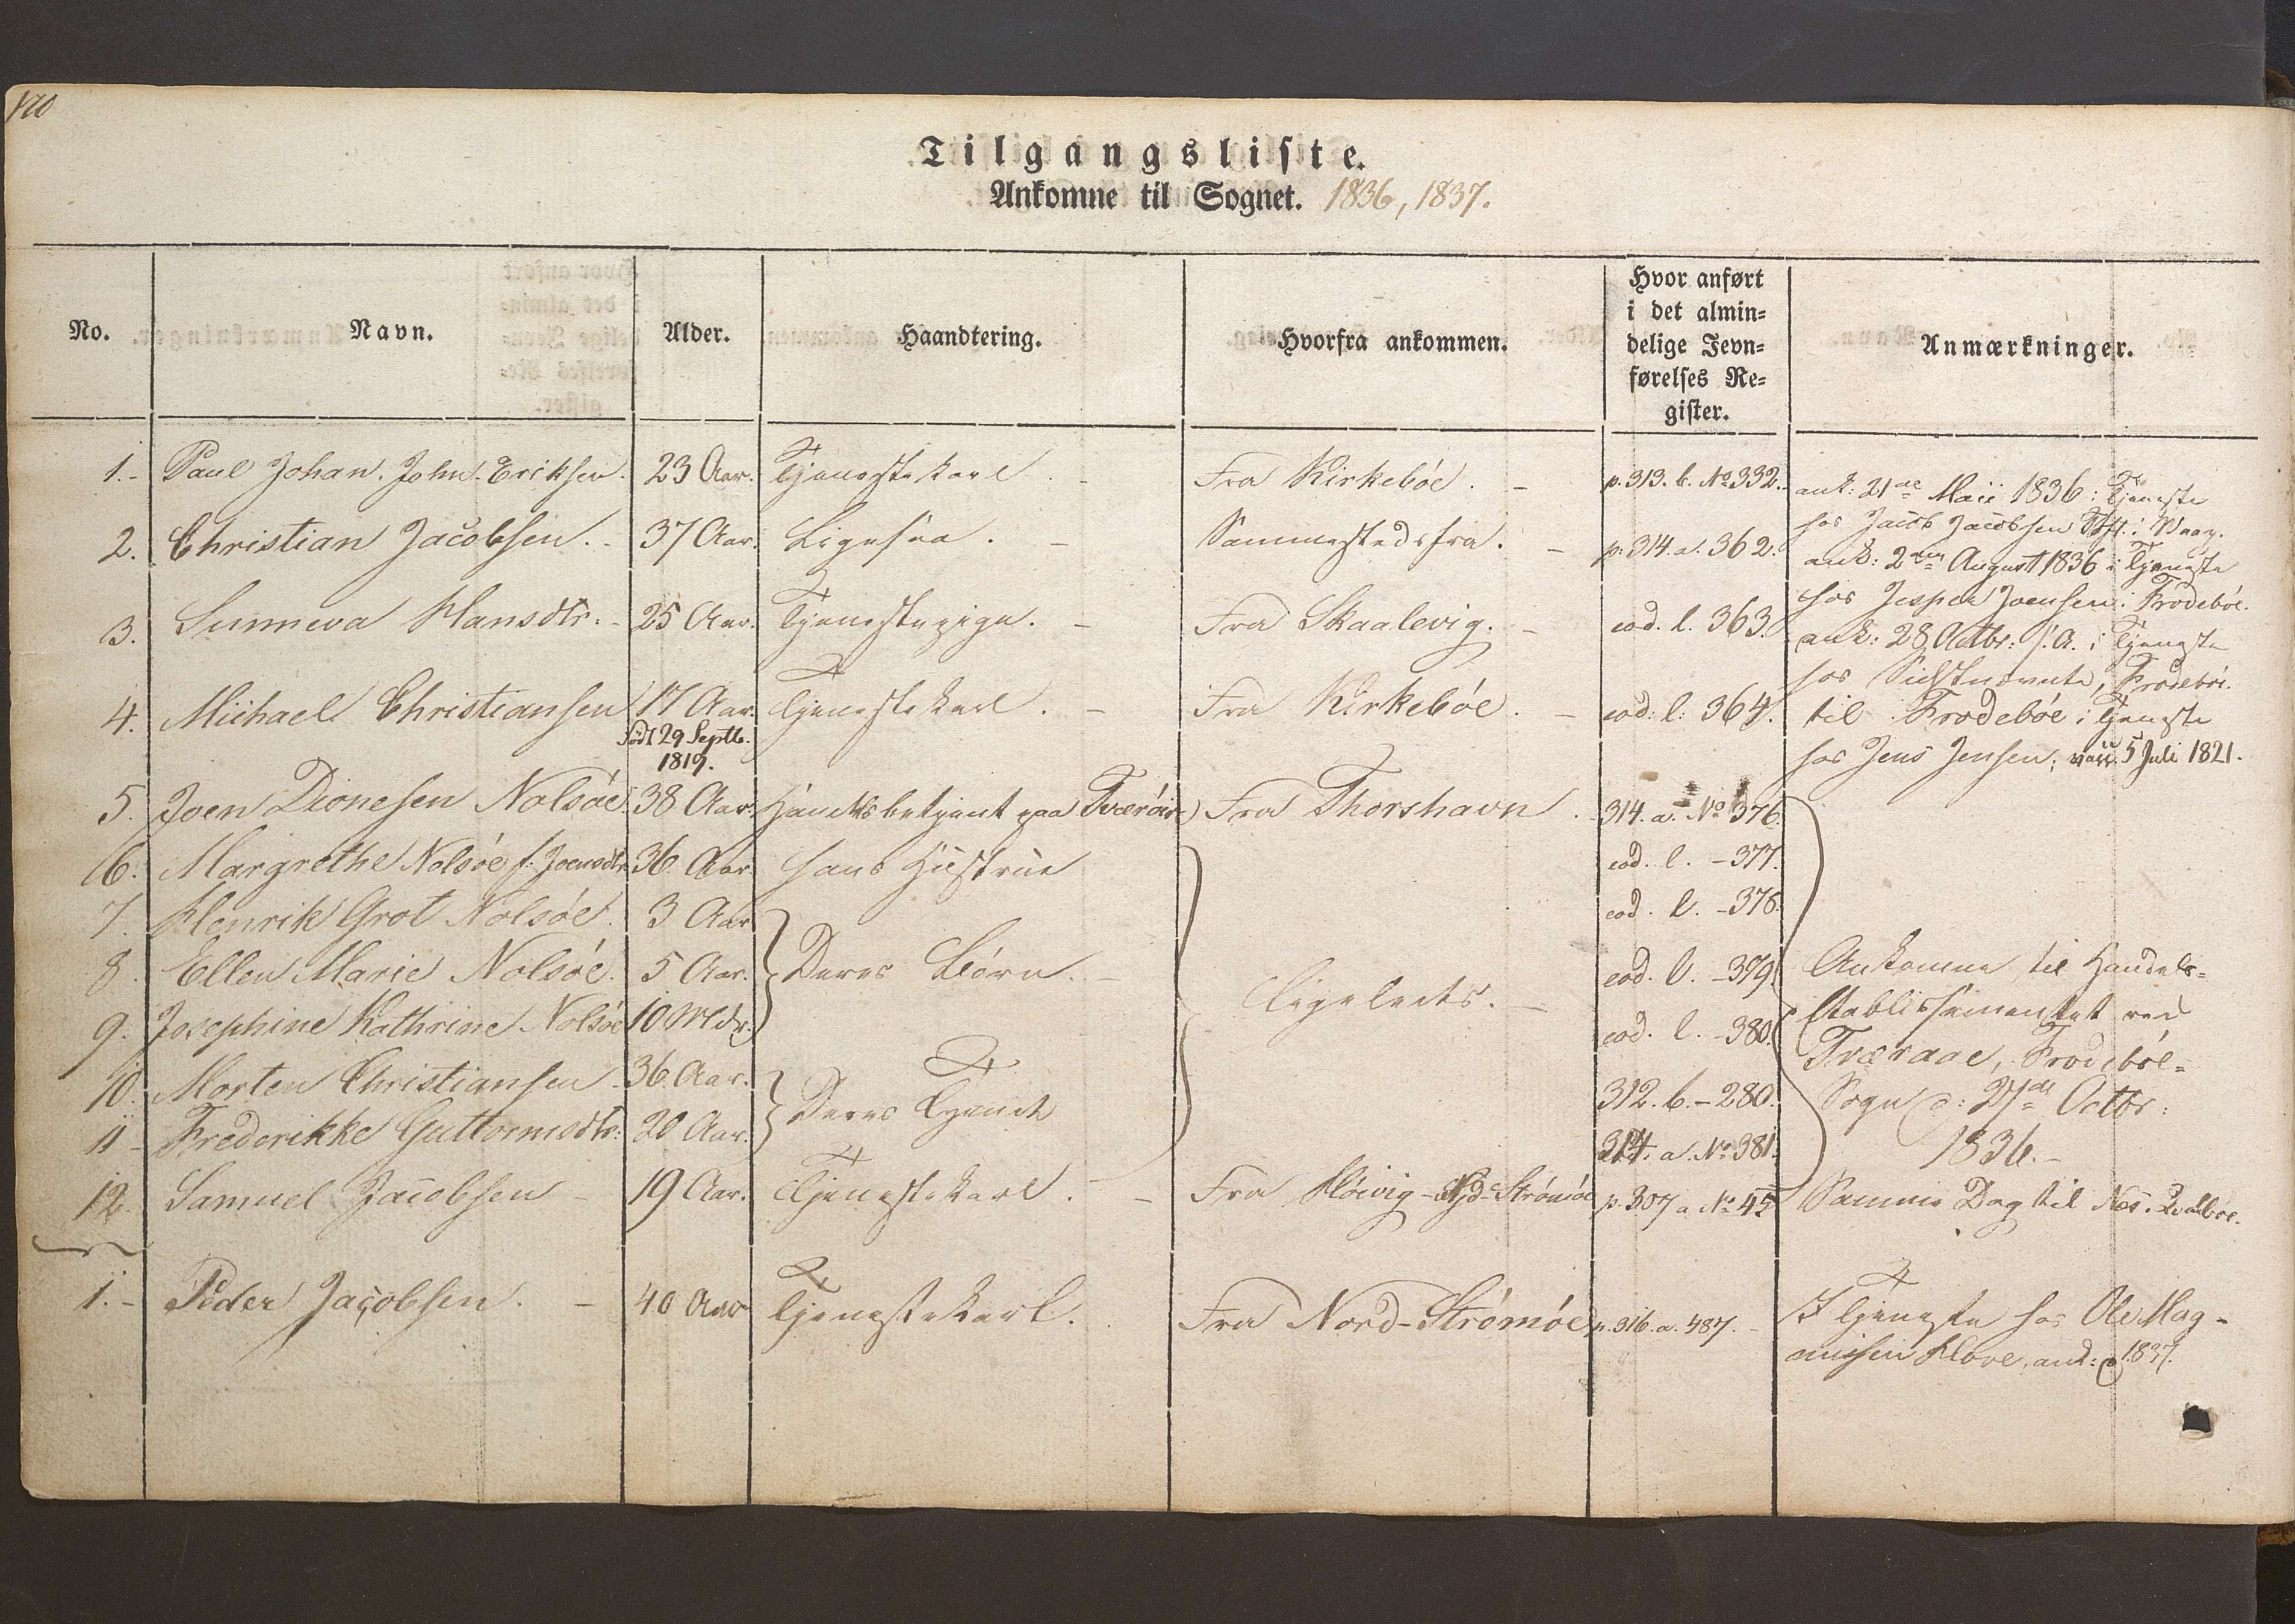 170
Tilgangsliste.
Ankomne til Sognet. 1836, 1837.
No. Navn. Alder. Haandtering. Hvorfra ankommen. Hvor anført i det almin= delige Jevn= førelses Re= gister. Anmærkninger.
1.- Paul Johan. John. Eriksen. 23 Aar. Tjenestekarl. - Fra Kirkebøe. - p. 313. b. No 332. ank: 21de Maii 1836 i Tjeneste
hos Jacob Jacobsen i Vaag.
2. Christian Jacobsen.- 37 Aar. Ligesaa. - Sammestedsfra. - p. 314 a. 362. ank: August 1836 i Tjeneste
hos Jesper Joensen i Frodebøe.
3. Sunneva Hansdtr.- 25 Aar. Tjenestepige. - Fra Skaalevig. - eod. l. 363. ank: 28 Octbr: s. A. i Tjeneste
hos Frodebøe.
4. Michael Christiansen 17 Aar. Tjenestekarl. - Fra Kirkebøe. - eod: l: 364. til Frodebøe i Tjeneste
født 29 Septb. 1819. hos Jens Jensen; vacc. 5 Juli 1821.
5. Joen Dionesen Nolsöe. 38 Aar. Handelsbetjent paa Tværöe Fra Thorshavn. 314. a. No 376.
6. Margrethe Nolsöe f. Joensdtr 36. Aar hans Hustrue eod. l. - 377.
7. Henrik Grot Nolsöe. 3 Aar eod. l. - 378.
8. Ellen Marie Nolsöe. 5 Aar. Deres Börn. - Ligeledes. - eod. l. - 379. Ankomne til Handels-
9. Josephine Kathrine Nolsöe 10 Mdr. eod. l. - 380. Etablissementet ved
Tværaae, Frodebøe-
10. Morten Christiansen - 36. Aar. Deres Tyende 312. b. - 280. Sogn d: 27de Octbr:
11 - Frederikke Guttormsdtr: 20 Aar. 314. a. No 381. 1836.-
12. Samuel Jacobsen - 19 Aar. Tjenestekarl. - Fra Höivig - Syd-Strömöe p. 307 a. No 45 Samme Dag til Nes. Qvalböe.
1.- Peder Jacobsen. - 40 Aar Tjenestekarl. Fra Nord-Strömöe p. 316. a. 487. - I Tjeneste hos Ole Mag-
nussen Hove, ank: 1837.